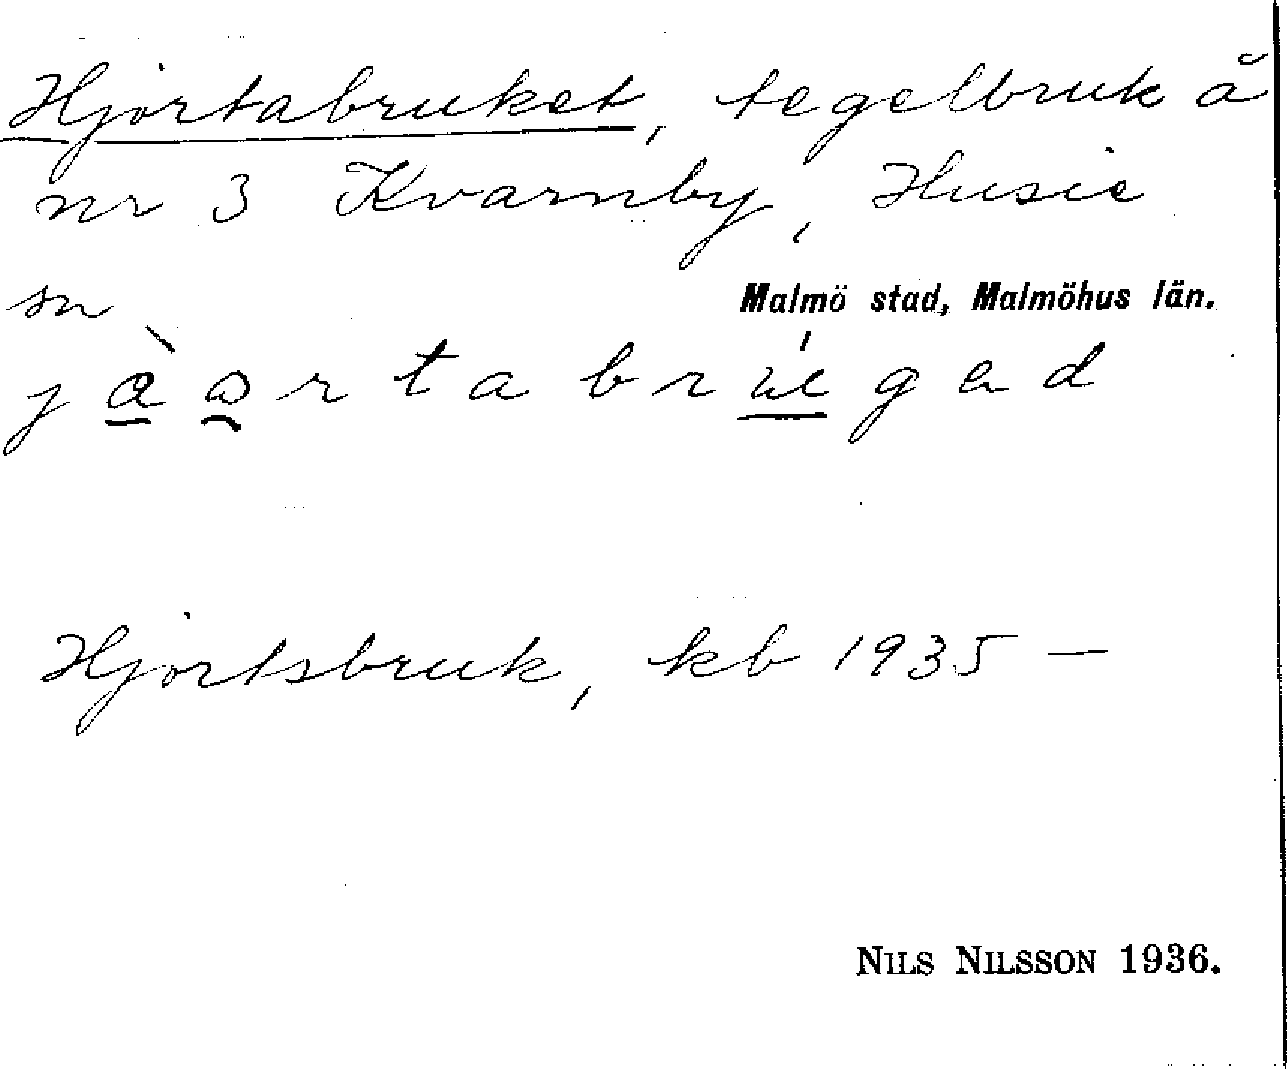 Hjortabruket, tegelbruk å
nr 3 Kvarnby, Husie
sn
Malmö stad, Malmöhus län.
Hjortsbruk, kb 1935 —
NILS NILSSON 1936.